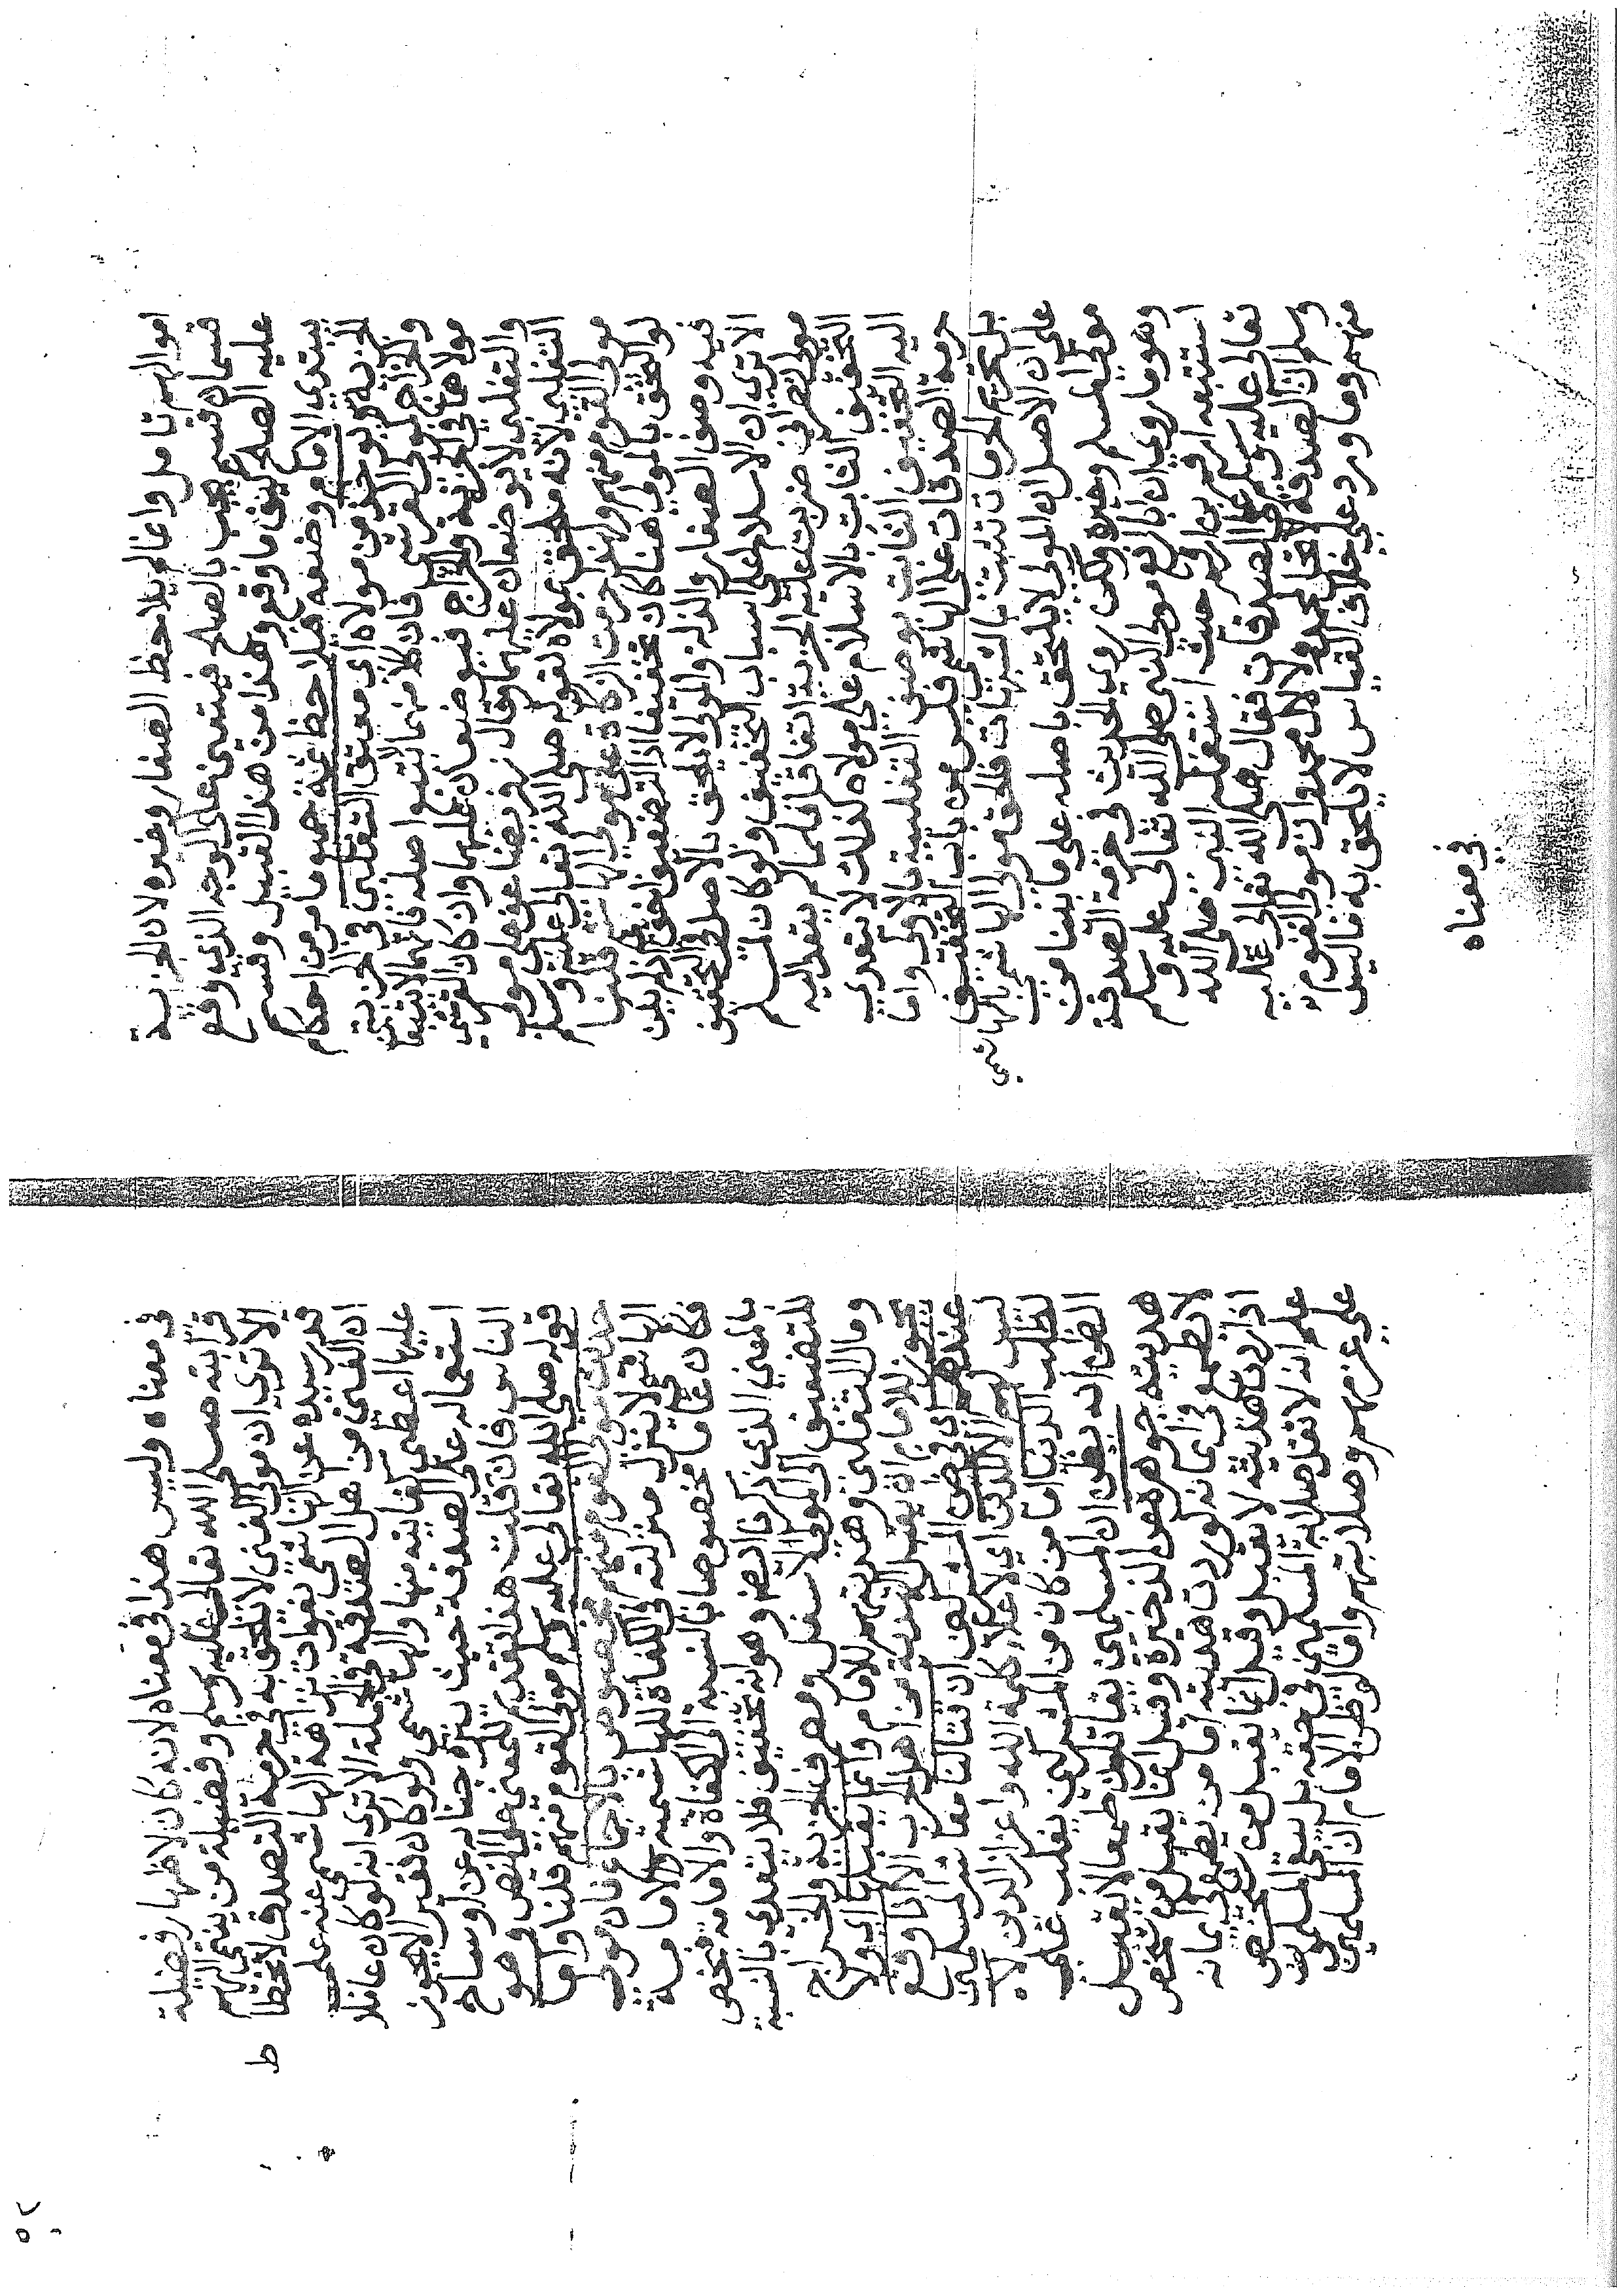 اموالهم تامل وانما لم يلاحظ الصغار وغيره لان الجزية
قسمان قسم يجب بالصلح فيبتني على الوجه الذي وقع
عليه الصلح كيف ما وقع وهذا من هذا القبيل وقسم
يبتدئ الامام وضعه فيلاحظ فيه جميع ما مر من احكام
الجزية ويوخذ من مولاه اي معتق التغلبي في الجزية
والخراج كمولى القرشي فان كلا منهما لا يتبع اصله فانهما لا يتبعا
مولاهما في الجزية والخراج فيوضعان عليهما وان كان القرشي
والتغلبي لا يوضعان عليهما وقال زفر يضاعف على مولى
التغلبي لانه ملحق بمولاه لقوله صلى الله تعالى عليه وسلم
مولى القوم منهم ولهذا حرمت الزكاة على مولى الهاشمي قلنا
لو الحق بالمولى هنا كان تخفيفا اذ التضعيف اخف اذ ليس
فيه وصف الصغار والذلة والمولى لا يلحق بالاصل في التخفيف
الا ترى ان الاسلام اعلى اسباب التخفيف ولو كان لمسلم
مولى نصراني ضربت عليه الجزية اتفاقا فلما لم يتعد اليه
التخفيف الثابت بالاسلام على مولاه كذلك لا يتعدى
اليه التخفيف الثابت بوصف التغلبية بالاولى واما
حرمة الصدقات على الهاشمي فليس من باب التخفيف
بل تحريم الحرمات تثبت بالشبهات فالحق مولى الهاشمي بالهاشمي
على ان الاصل ان المولى لا يلحق باصله على ما بينا من
مولى المسلم وغيره ولكن روي الحديث في حرمة الصدقة
وهو ما روي ان ابا رافع مولى النبي صلى الله تعالى عليه وسلم
استتبعه ارقم بن ارقم حيث استعمله النبي صلى الله
تعالى عليه وسلم على الصدقات فقال صلى الله تعالى عليه
وسلم ان الصدقة لا تحل لمحمد ولا لال محمد وان مولى القوم
منهم وما ورد على خلاف القياس لا يلحق به ما ليس
في معناه
في معناه وليس هذا في معناه لانه كان لاظهار فضيلة
قرابته صلى الله تعالى عليه وسلم وفضيلة من ينتمي اليهم
الا ترى ان مولى الغني لا يلحق به في حرمة التصدق لانحطاط
قدر سيده عن الهاشمي بفوات نزاهة الهاشمي عنه على
ان الغني من اهل الصدقة في الجملة الا ترى انه لو كان عاملا
عليها اعطي كفايته منها والهاشمي ولو كان فقيرا لا يجوز
استعماله على الصدقة حيث ينزه جنابه عن اوساخ
الناس فان قلت هذا تقديم للمعنى على النص وهو
قوله صلى الله تعالى عليه وسلم مولى القوم منهم قلنا واما
حديث مولى القوم منهم مخصوص بالاجماع فان مولى
الهاشمي لا ينزل منزلته في الكفاءة للهاشمية والامامة
فكان عاما مخصوصا بالنسبة الى الكفاءة والامامة فنخص
بالمعنى الذي ذكرنا ايضا وهو انه تخفيف فلا يتعدى بالنسبة
للتضعيف الى المولى الاسفل ومصرف الجزية والخراج
ومال التغلبي وهديتهم للامام وانما يقبلها اي ولا
يجوز للامام ان يقبل الهدية من اهل الحرب الا اذا وقع
عندهم اي في ظن المشركين ان قتالنا معاشر المسلمين
ليس لهم الا للدين اي لاعلاء كلمة الله واعزاز الدين لا
لطلب الدنيا اما من كان من المشركين يغلب على
الظن انه يظن ان المسلمين يقاتلون طمعا لا يقبل
هديته جوهرة هي الذخيرة وقيل انما يقبل من شخص
لا يطمع في ايمانه لو ردت هديته اما من يطمع في ايمانه
اذا ردت هديته لا يقبل وقيل انما يقبل من شخص
علم انه لا تقل صلابة المسلمين في حقه بل يبقى المسلمون
على عزمهم وصلابتهم واما لو ظن الامام ان المسلمين
ط
٥٢